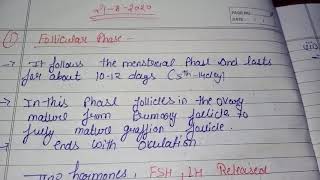 21-8-2020
PAGE NO.
DATE
① Follicular Phase -
→ It follows the menstrual Phase and lasts
for about 10-12 days (5th-
→ In this Phase follicles in the ovary
mature from Primary follicle to
fully mature graffian follicle.
→ ends with Ovulation
hormones, FSH, LH Released